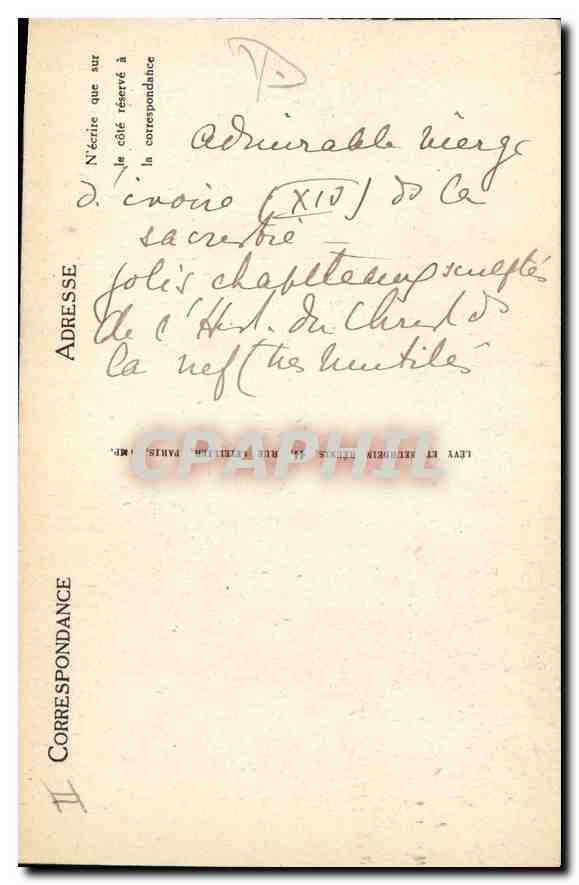 N'écrire que sur
le côté réservé à
la correspondance
admirable vierge
d'ivoire (XIV) ds la
sacristie —
jolis chapiteaux sculptés
de l'Hist. du Christ ds
la nef (très mutilés
ADRESSE
CPAPHIL
LÉVY ET NEURDEIN RÉUNIS, 44, RUE LETELLIER, PARIS. IMP.
CORRESPONDANCE
II